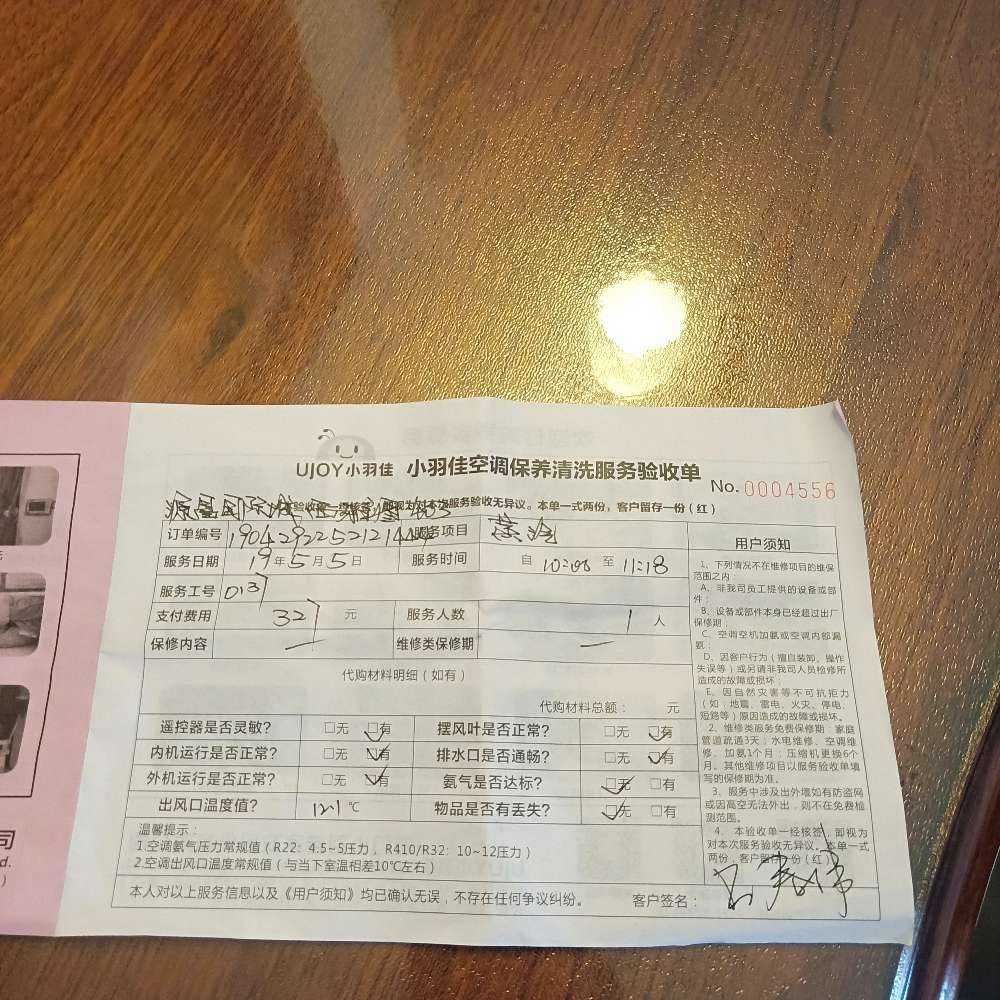 UJOY小羽佳 小羽佳空调保养清洗服务验收单
No. 0004556
服务验收无异议。本单一式两份，客户留存一份（红）
订单编号 服务项目
用户须知
服务日期 19年5月5日 服务时间 自 10:06 至 11:18
服务工号 0137
支付费用 327 元 服务人数 1 人
保修内容 — 维修类保修期 —
代购材料明细（如有）
代购材料总额： 元
遥控器是否灵敏？ □无 □有 摆风叶是否正常？ □无 □有
内机运行是否正常？ □无 □有 排水口是否通畅？ □无 □有
外机运行是否正常？ □无 □有 氨气是否达标？ □无 □有
出风口温度值？ 12.1 ℃ 物品是否有丢失？ □无 □有
温馨提示：
1.空调氨气压力常规值（R22：4.5~5压力，R410/R32：10~12压力）
2.空调出风口温度常规值（与当下室温相差10℃左右）
本人对以上服务信息以及《用户须知》均已确认无误，不存在任何争议纠纷。 客户签名：
1、下列情况不在维修项目的维保
范围之内：
A、非我司员工提供的设备或部
件；
B、设备或部件本身已经超过出厂
保修期；
C、空调空机加氨或空调内部漏
氨；
D、因客户行为（擅自装卸、操作
失误等）或另请非我司人员检修所
造成的故障或损坏；
E、因自然灾害等不可抗拒力
（如：地震、雷电、火灾、停电、
短路等）原因造成的故障或损坏。
2、维修类服务免费保修期：家庭
管道疏通3天；水电维修、空调维
修、加氨1个月；压缩机更换6个
月。其他维修项目以服务验收单填
写的保修期为准。
3、服务中涉及出外墙如有防盗网
或因高空无法外出，则不在免费检
测范围。
4、本验收单一经核签，即视为
对本次服务验收无异议。本单一式
两份，客户留存一份（红）
司
d.
）
元